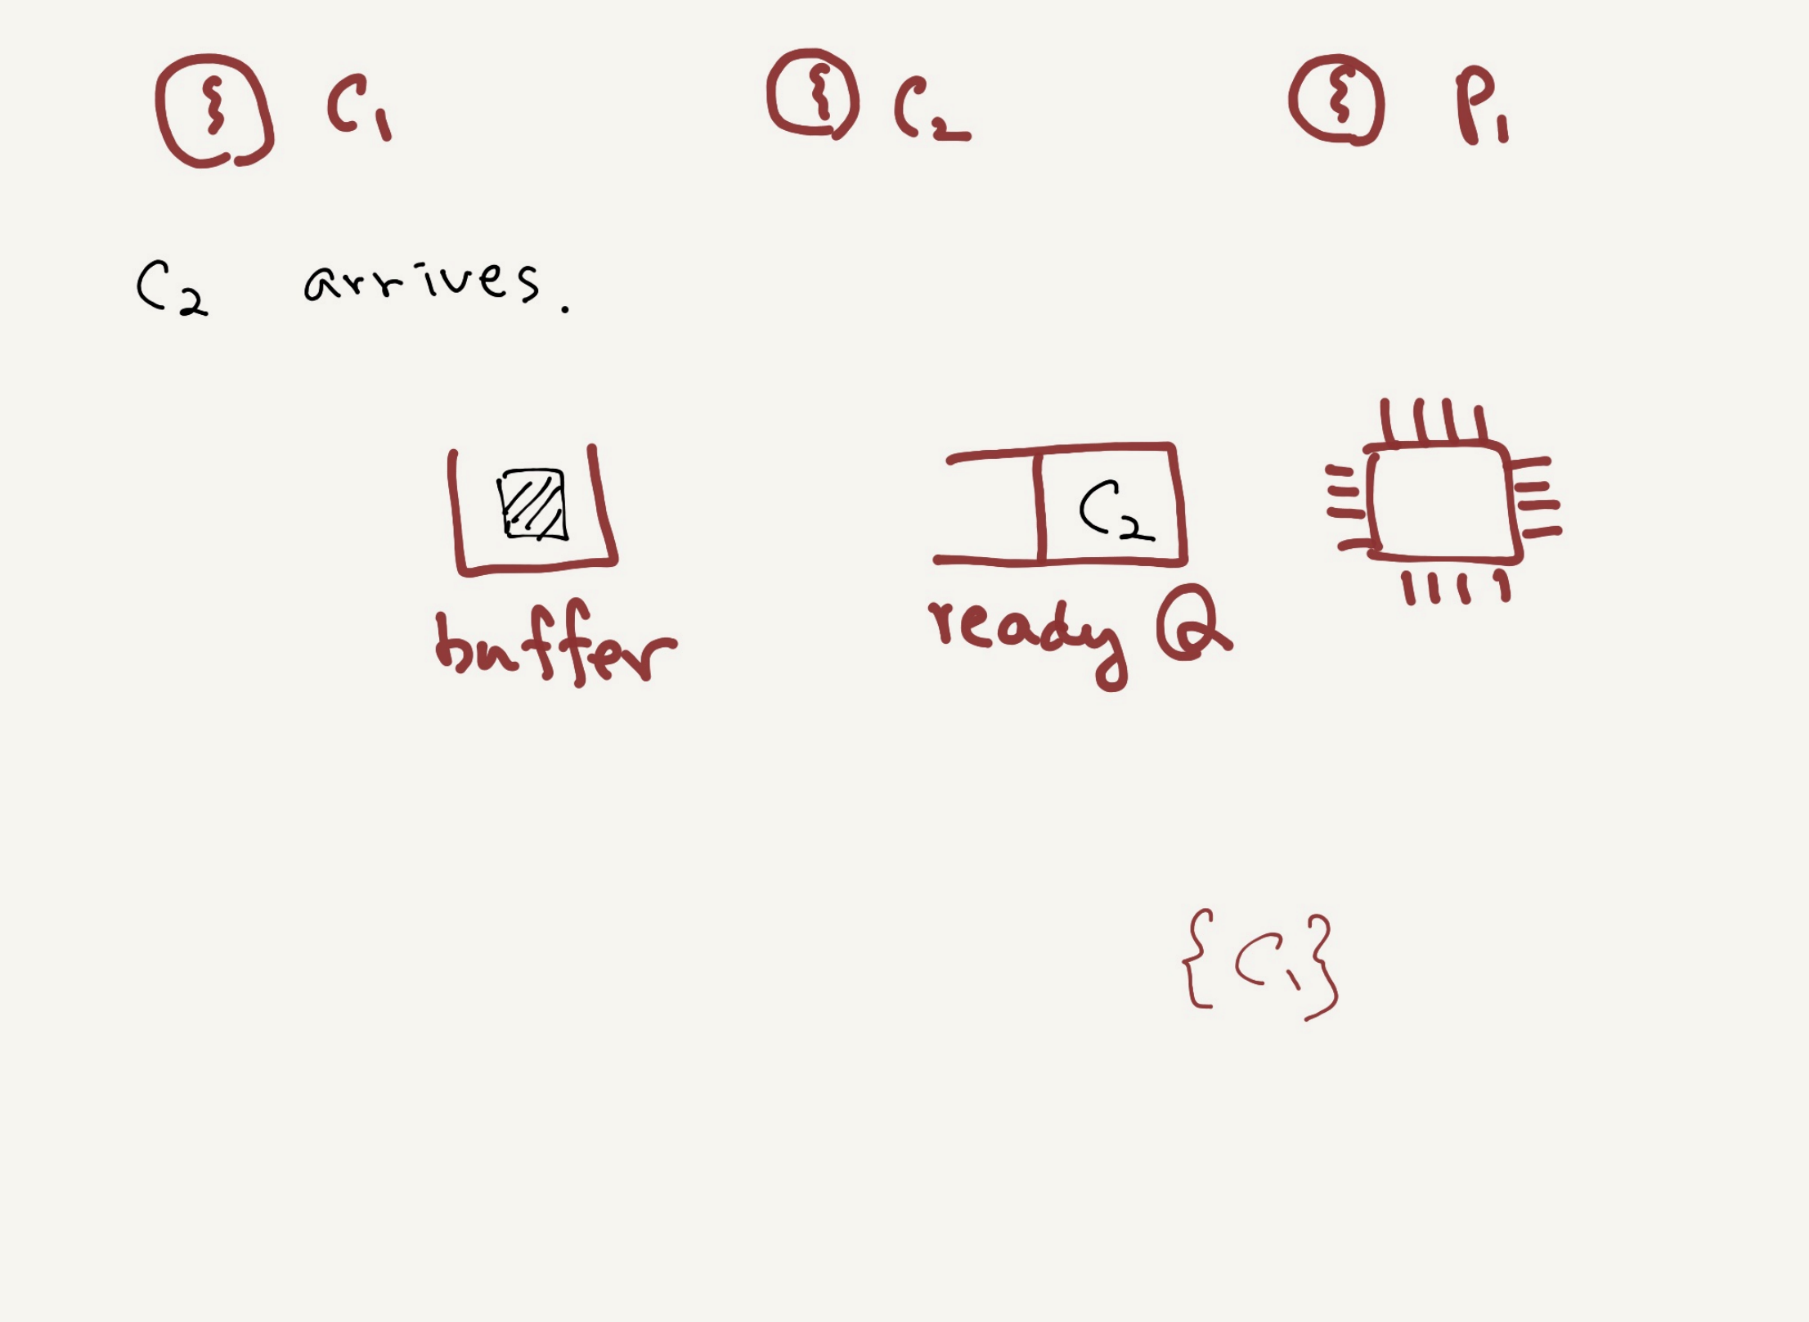 C₁
C₂
P₁
C₂ arrives.
C₂
buffer
ready Q
{C₁}